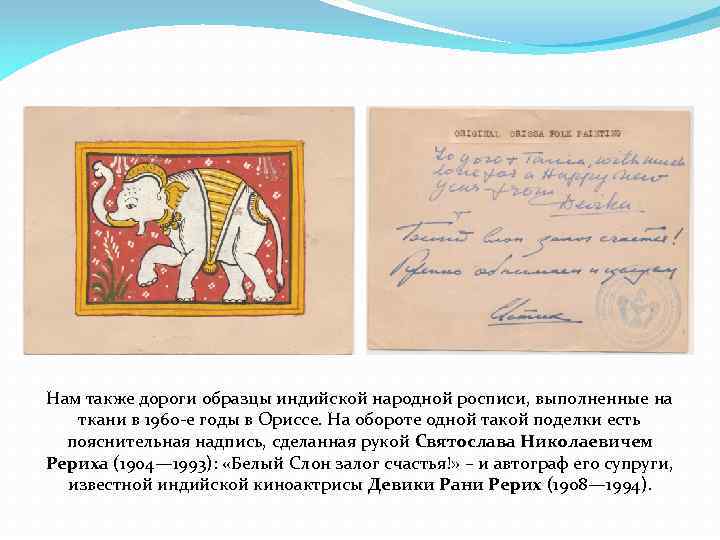 ORIGINAL ORISSA FOLK PAINTING
To gogo + Tania, with much
love for a Happy New
Year from
Devika
+
Белый Слон залог счастья!
Крепко обнимаем и целуем
Светик
Нам также дороги образцы индийской народной росписи, выполненные на
ткани в 1960-е годы в Ориссе. На обороте одной такой поделки есть
пояснительная надпись, сделанная рукой Святослава Николаевичем
Рериха (1904—1993): «Белый Слон залог счастья!» – и автограф его супруги,
известной индийской киноактрисы Девики Рани Рерих (1908—1994).